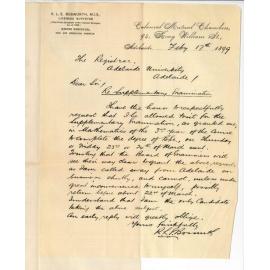 R. L. E. BOSWORTH, M.I.S.,
LICENSED SURVEYOR
Colonial Mutual Chambers,
King William St,
Adelaide Feby 17th 1899
The Registrar,
Adelaide University
Adelaide!
Dear Sir! Re Supplementary Examination
I have the honor to respectfully
request that I be allowed to sit for the
Supplementary Examination, as granted me
in Mathematics of the 3rd year of the
to complete the degree of, on Thursday
or Friday 23rd or 24th of March next.
Trusting that the Board of Examiners will
see their way clear to grant the above request,
as I am called away from Adelaide on
business shortly, and cannot, unless under
great inconvenience to myself, possibly
return here before about 22nd of March.
I understand that I am the only Candidate
taking the above subject.
An early reply will greatly oblige.
Yours faithfully
R L E Bosworth